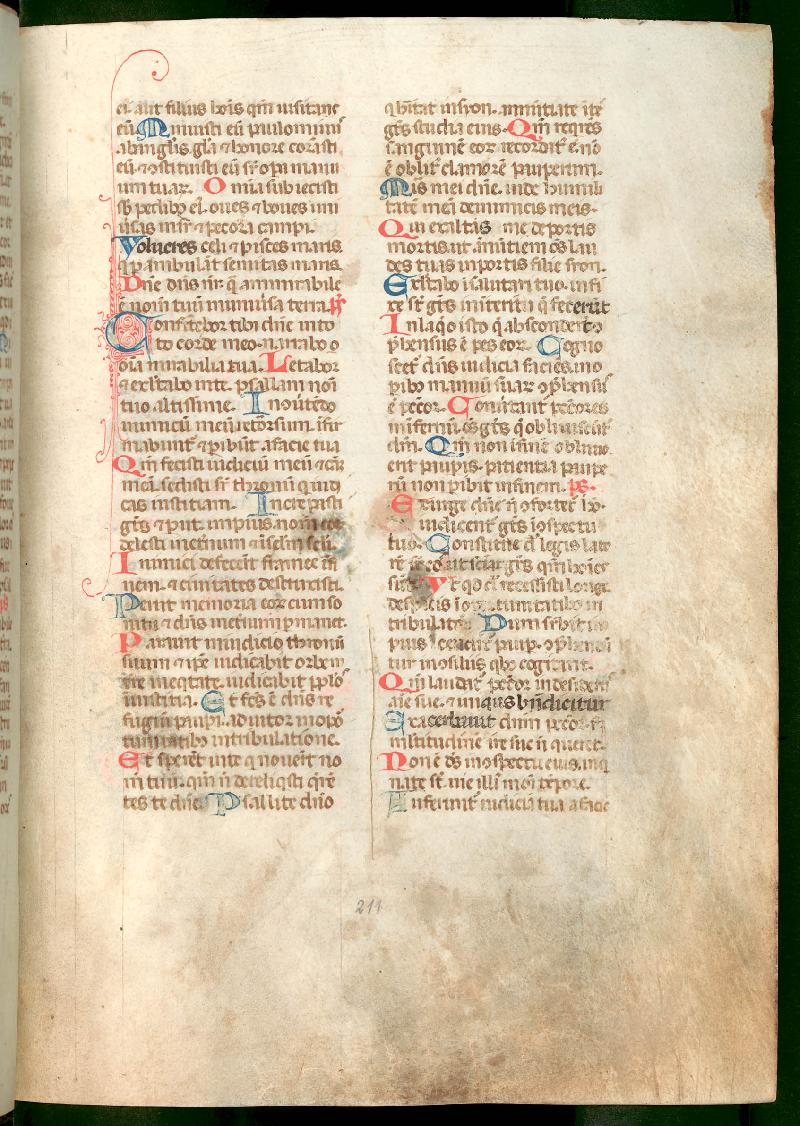 ei. aut filius hoĩs qm̃ uisitasc
eũ. Minuisti eũ paulominus
ab anglis. gl̃a ⁊ honore corasti
eũ. ⁊ ↄstituisti eũ sr̃ opa manu
um tuar. Omnia subiecisti
sb̃ pedibꝰ ei. oues ⁊ boues uni
uersas insr̃ ⁊ pecora campi.
Volucres celi ⁊ pisces maris
q̃ pambulãt semitas maris.
Dñe dñs nr̃. q̃ ammirabile
ẽ nom̃ tuũ in uniũsa terra. ps̃
Confitebor tibi dñe in to
to corde meo. narrabo o
oĩa mirabilia tua. Letabor
⁊ exltabo inte. psallam noĩ
tuo altissime. In ↄuẽtẽdo
inimicũ meũ retorsum. ĩfir
mabunt̃ ⁊ pibũt afacie tua
Qm̃ fecisti iudiciũ meũ ⁊ cãm
meã. sedisti sr̃ thronũ q̃ iudi
cas iustitiam. Increpasti
gẽs ⁊ piit impius. nom̃ eor̃
delesti ineternum ⁊ ĩsclm̃ scli.
Inimici defecer̃t framee ĩfi
nem. ⁊ ciuitates destruxisti.
Periit memoria eor cum so
nitu ⁊ dñs ineternum pmanet.
Parauit iniudicio thronũ
suum ⁊ ipẽ iudicabit orbem
tre ineqtate. iudicabit pplõs
iniustitia. Et fcs̃ ẽ dñs re
fugiũ paupi. adiutor inopo
tunitatibꝰ intribulatione.
Et sperẽt inte q̃ nouerũt no
m̃ tuũ. qm̃ ñ dereliqsti qr̃ẽ
tes te dñe. Psallite dño
q̃ hĩtat insyon. annũtiate ĩt̃
gẽs studia eius. Qm̃ reqres
sanguinẽ eor recordat̃ ẽ. nõ
ẽ oblit̃ clamorẽ pauperum.
Mis̃ mei dñe. uide humili
tatẽ meã deinimicis meis.
Qui exaltas me deportis
mortis. ut ãnũtiem oẽs lau
des tuas inportis filie syon.
Exltabo ĩsalutari tuo. infi
xe sũt gẽs ĩinteritu q̃ fecerũt
Inlaqo isto q̃ absconderũt
ↄphensus ẽ pes eor. Cogno
scet̃ dñs iudicia faciẽs. ĩno
pibꝰ manuũ suar ↄphensus
ẽ pctor. Conũtant̃ pctores
ininfernũ. oẽs gẽs q̃ obliuiscũt̃
dm̃. Qm̃ non ĩfinẽ obliuio
erit paupis. patientia paupe
rũ non pibit infinem. ps̃.
Exurge dñe ñ ↄfortet̃ hõ.
iudicent̃ gẽs ĩↄspectu
tuo. Constitue dñe legislato
rẽ sr̃ eos. ut sciãt gẽs qm̃ hoĩes
sũt. Vt qd dñe recessisti longe.
despicis ĩoportunitatibꝰ in
tribulatiõe. Dum supbit im
pius ĩcẽdit̃ paup. ↄphendũ
tur ĩↄsiliis qbꝰ cogitant.
Qm̃ laudat̃ pctor indesideriis
aĩe sue. ⁊ iniquus bñdicitur
Exacerbauit dnm̃ pctor. sm̃
mltitudinẽ ire sue ñ queret.
Non ẽ dš inↄspectu eius. inq
nate sũt uie illi oĩ tẽpore.
Auferunt̃ iudicia tua afacie
211